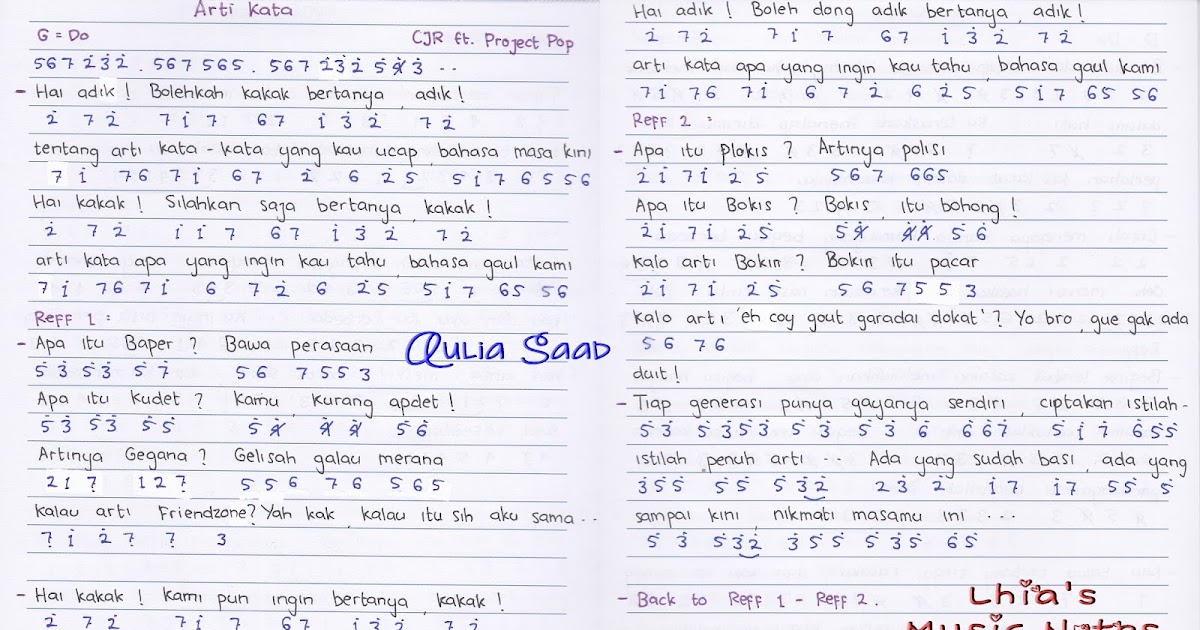 Arti Kata
G = Do CJR ft. Project Pop
5 6 7 2̇ 3̇ 2̇ . 5 6 7 5 6 5 . 5 6 7 2̇ 3̇ 2̇ 5̇ 4̸̇ 3̇ . .
- Hai adik ! Bolehkah kakak bertanya , adik !
2̇ 7 2̇ 7 1̇ 7 6 7 1̇ 3̇ 2̇ 7 2̇
tentang arti kata - kata yang kau ucap , bahasa masa kini
7 1̇ 7 6 7 1̇ 6 7 2̇ 6 2̇ 5 5 1̇ 7 6 5 5 6
Hai kakak ! Silahkan saja bertanya , kakak !
2̇ 7 2̇ 1̇ 1̇ 7 6 7 1̇ 3̇ 2̇ 7 2̇
arti kata apa yang ingin kau tahu , bahasa gaul kami
7 1̇ 7 6 7 1̇ 6 7 2̇ 6 2̇ 5 5 1̇ 7 6 5 5 6
Reff 1 :
- Apa itu Baper ? Bawa perasaan
5̇ 3̇ 5̇ 3̇ 5̇ 7̇ 5 6 7 5 5 3
Apa itu Kudet ? Kamu , kurang apdet !
5̇ 3̇ 5̇ 3̇ 5̇ 5̇ 5̇ 4̸̇ 4̸̇ 4̸̇ 5̇ 6̇
Artinya Gegana ? Gelisah galau merana
2 1 7̣ 1 2 7̣ 5 5 6 7 6 5 6 5
kalau arti Friendzone? Yah kak , kalau itu sih aku sama . . .
7 1̇ 2̇ 7 7 3
- Hai kakak ! Kami pun ingin bertanya , kakak !
2̇ 7 2̇ 1̇ 1̇ 7 6 7 1̇ 3̇ 2̇ 7 2̇
Qulia Saad
Hai adik ! Boleh dong adik bertanya , adik !
2̇ 7 2̇ 7 1̇ 7 6 7 1̇ 3̇ 2̇ 7 2̇
arti kata apa yang ingin kau tahu , bahasa gaul kami
7 1̇ 7 6 7 1̇ 6 7 2̇ 6 2̇ 5 5 1̇ 7 6 5 5 6
Reff 2 :
- Apa itu Plokis ? Artinya polisi
2̇ 1̇ 7 1̇ 2̇ 5̇ 5 6 7 6 6 5
Apa itu Bokis ? Bokis , itu bohong !
2̇ 1̇ 7 1̇ 2̇ 5̇ 5̇ 4̸̇ 4̸̇ 4̸̇ 5̇ 6̇
kalo arti Bokin ? Bokin itu pacar
2̇ 1̇ 7 1̇ 2̇ 5̇ 5 6 7 5 5 3
kalo arti 'eh coy gout garadai dokat' ? Yo bro , gue gak ada
5 6 7 6
duit !
- Tiap generasi punya gayanya sendiri , ciptakan istilah -
5̇ 3̇ 5̇ 3̇ 5̇ 3̇ 5̇ 3̇ 5̇ 3̇ 6̇ 6̇ 6̇ 7̇ 5̇ 1̇ 7̇ 6̇ 5̇ 5̇
istilah penuh arti . . . Ada yang sudah basi , ada yang
3̇ 5̇ 5̇ 5̇ 5̇ 5̇ 3̇ 2̇ 2̇ 3̇ 2̇ 1̇ 7 1̇ 7 5̇ 5̇ 5̇
sampai kini , nikmati masamu ini . . .
5̇ 3̇ 5̇ 3̇ 2̇ 3̇ 5̇ 5̇ 5̇ 3̇ 5̇ 6̇ 5̇
- Back to Reff 1 - Reff 2 .
Lhia's
Music Notes